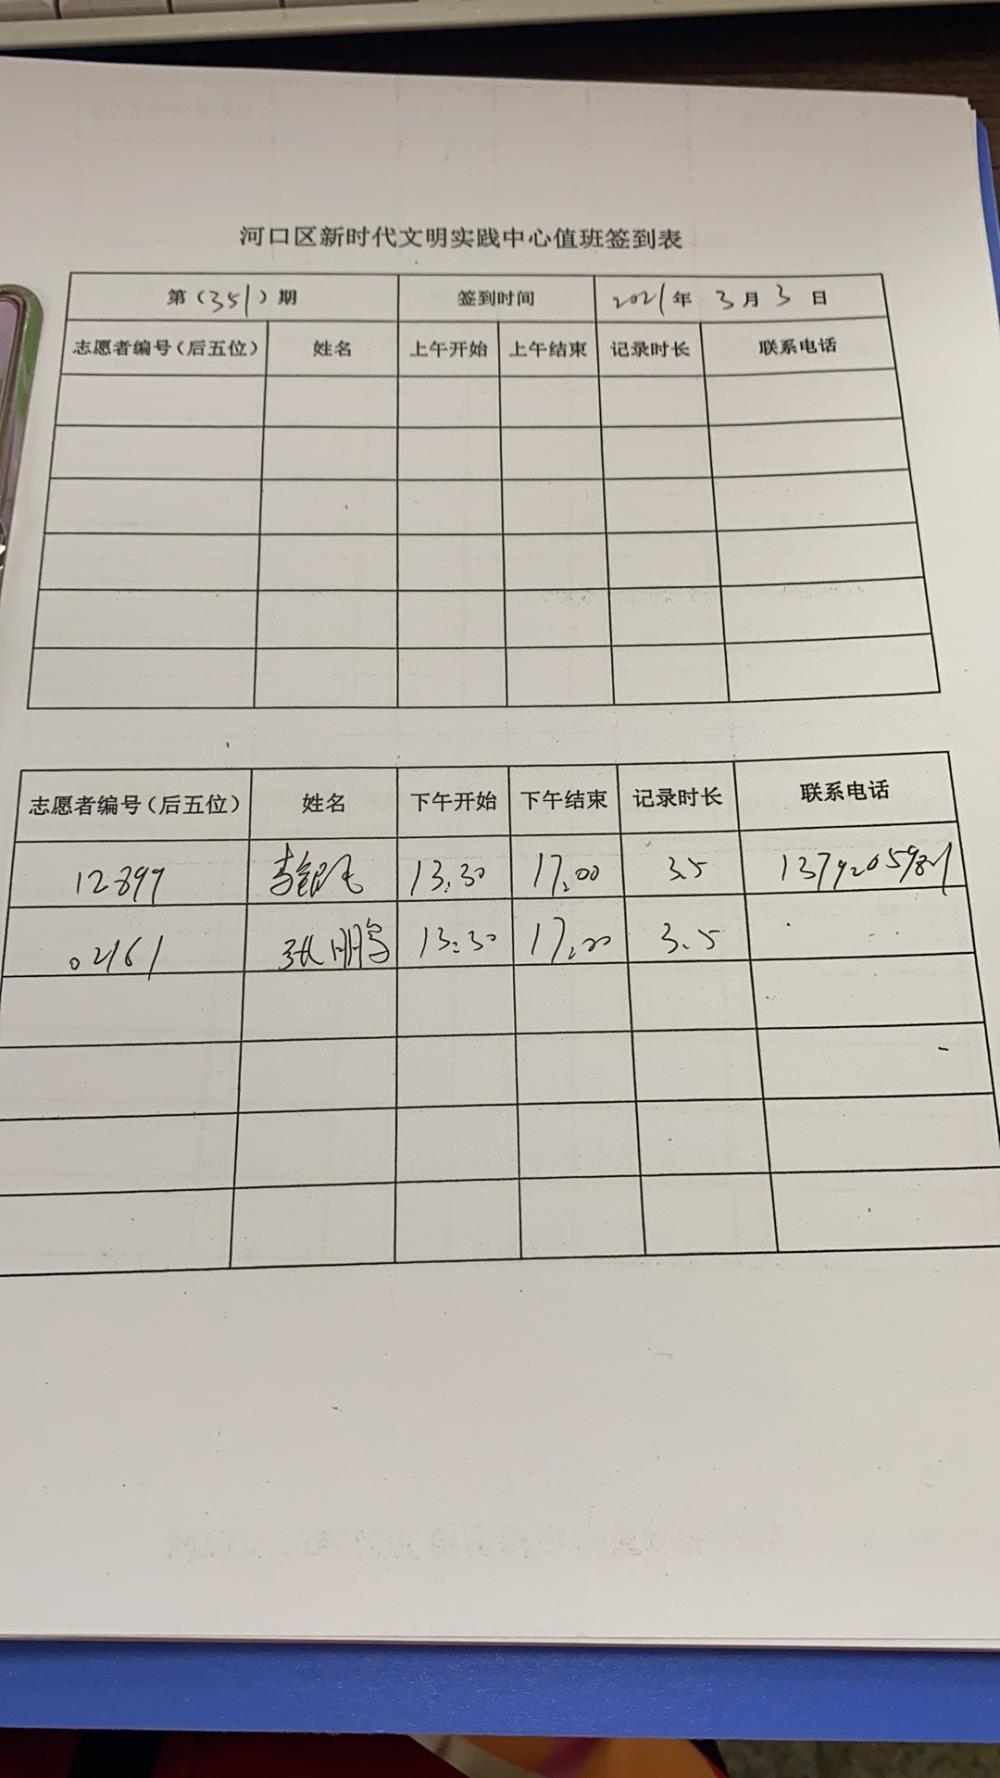 河口区新时代文明实践中心值班签到表
第（351）期 签到时间 2021年 3月3日
志愿者编号（后五位） 姓名 上午开始 上午结束 记录时长 联系电话
志愿者编号（后五位） 姓名 下午开始 下午结束 记录时长 联系电话
12899 13.30 17.00 3.5
02161 张鹏 13:30 17.00 3.5